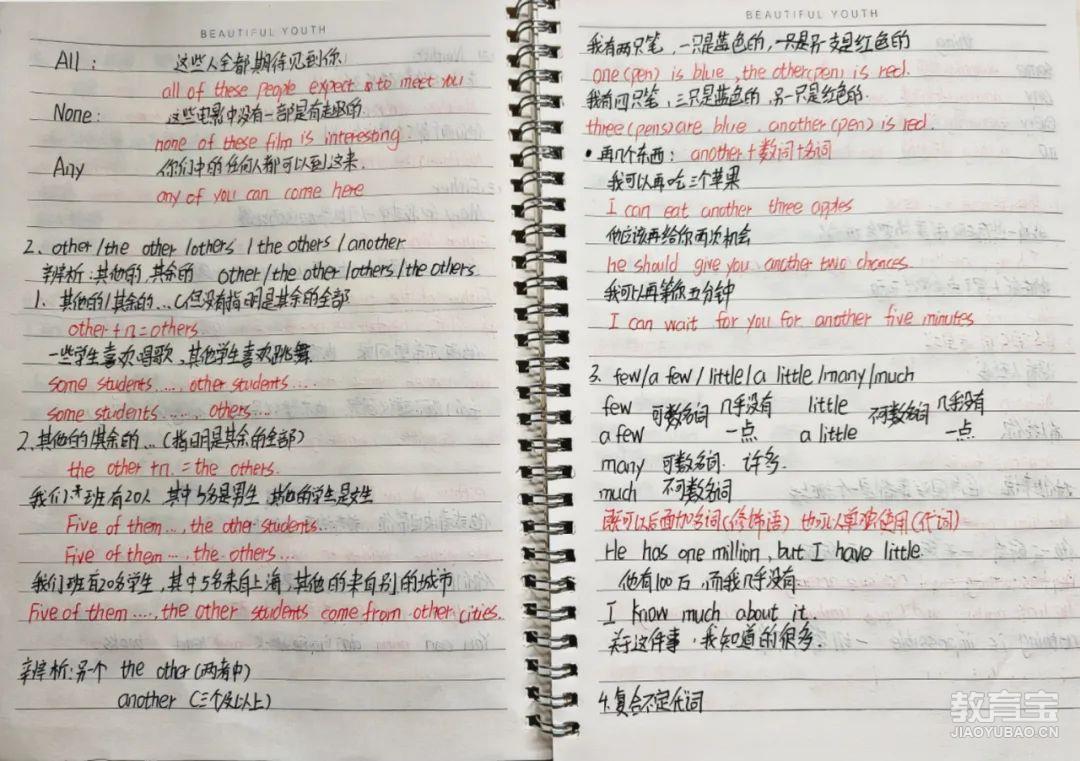 BEAUTIFUL YOUTH
All: 这些人全都期待见到你
all of these people expect to meet you
None: 这些电影中没有一部是有趣的
none of these film is interesting
Any 你们中的任何人都可以到这来.
any of you can come here
2. other/the other/others/the others/another
辨析:其他的,其余的 other/the other/others/the others.
1. 其他的/其余的...(但没有指明是其余的全部)
other+n.=others.
一些学生喜欢唱歌,其他学生喜欢跳舞.
some students....., other students....
some students......, others....
2.其他的/其余的...(指明是其余的全部)
the other+n.=the others.
我们班有20人 其中5名是男生 其他的学生是女生
Five of them..., the other students.
Five of them..., the others...
我们班有20名学生,其中5名来自上海,其他的来自别的城市
Five of them...., the other students come from other cities.
辨析:另一个 the other (两者中)
another (三个及以上)
BEAUTIFUL YOUTH
我有两只笔,一只是蓝色的,一只是红色的
one(pen) is blue, the other(pen) is red.
我有四只笔,三只是蓝色的,另一只是红色的.
three(pens) are blue. another(pen) is red.
•再几个东西: another+数词+名词
我可以再吃三个苹果
I can eat another three apples
他应该再给你两次机会
he should give you another two chances.
我可以再等你五分钟
I can wait for you for another five minutes
3. few/a few/little/a little/many/much
few 可数名词 几乎没有 little 不可数名词 几乎没有
a few 一点 a little 一点
many 可数名词. 许多.
much 不可数名词
既可以后面加名词(修饰语) 也可以单独使用(代词)
He has one million, but I have little.
他有100万,而我几乎没有.
I know much about it.
关于这件事,我知道的很多.
4.复合不定代词
教育宝
JIAOYUBAO.CN